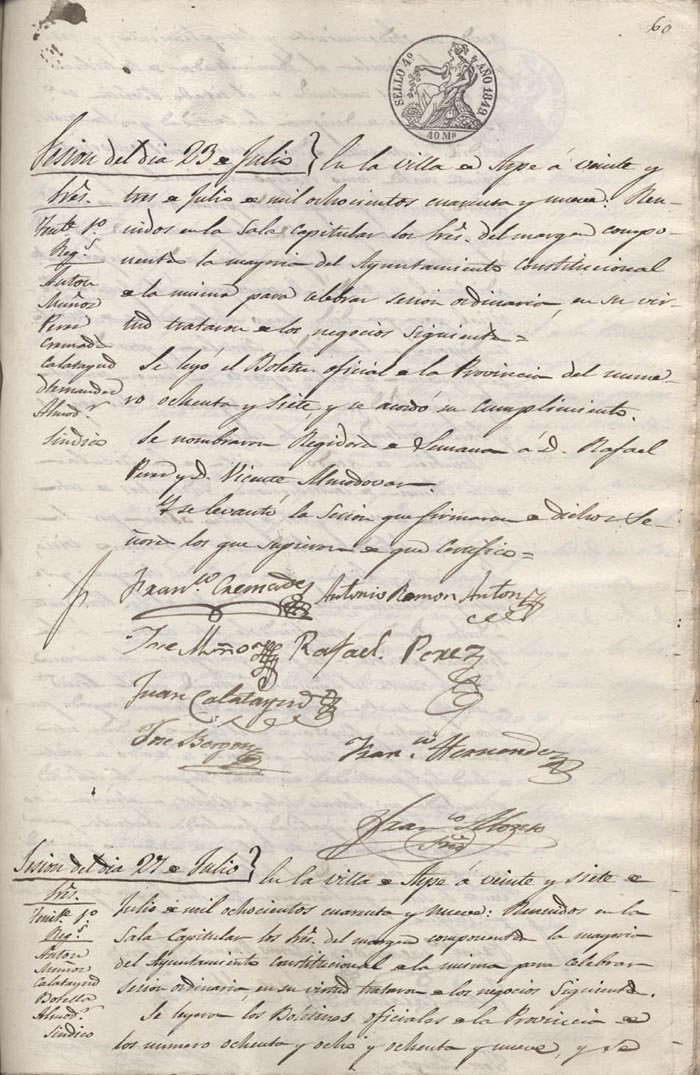 60
SELLO 4º AÑO 1849
40 Ms
Sesion del dia 23 de Julio } En la villa de Aspe á veinte y
tres de Julio de mil ochocientos cuarenta y nueve: Reu-
nidos en la Sala Capitular los Sres. del margen compo-
nentes la mayoria del Ayuntamiento Constitucional
de la misma para celebrar sesion ordinaria, en su vir-
tud trataron de los negocios siguientes=
Sres.
Tente. 1º
Regs.
Anton
Muñoz
Perez
Cremades
Calatayud
Hernandez
Almodr.
Sindico
Se leyó el Boletin oficial de la Provincia del nume-
ro ochenta y siete, y se acordó su cumplimiento.
Se nombraron Regidores de Semana á D. Rafael
Perez y D. Vicente Almodovar.
Y se levantó la Sesion que firmaron de dichos Se-
ñores los que supieron de que Certifico=
Franco. Cremades Antonio Ramon Anton
Jose Muñoz Rafael Perez
Juan Calatayud
Jose
Franco. Hernandez
Franco. Alonso
Srio
Sesion del dia 27 de Julio } En la villa de Aspe á veinte y siete de
Julio de mil ochocientos cuarenta y nueve: Reunidos en la
Sala Capitular los Sres. del margen componentes la mayoria
del Ayuntamiento constitucional de la misma para celebrar
sesion ordinaria, en su virtud trataron de los negocios siguientes.
Sres.
Tente. 1º
Regs.
Anton
Munoz
Calatayud
Botella
Almodr.
Sindico
Se leyeron los Boletines oficiales de la Provincia de
los numero ochenta y ocho y ochenta y nueve, y se